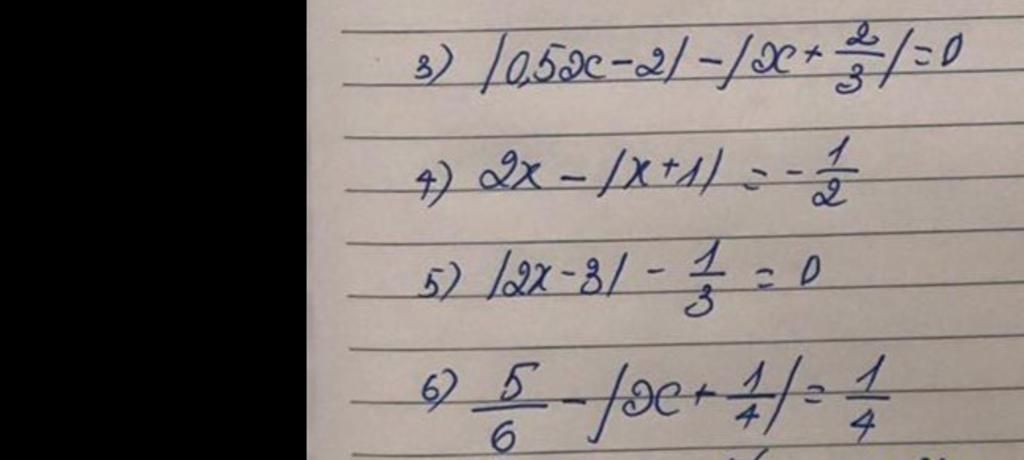 3) |0,5x - 2| - |x + 2/3| = 0
4) 2x - |x + 1| = - 1/2
5) |2x - 3| - 1/3 = 0
6) 5/6 - |x + 1/4| = 1/4